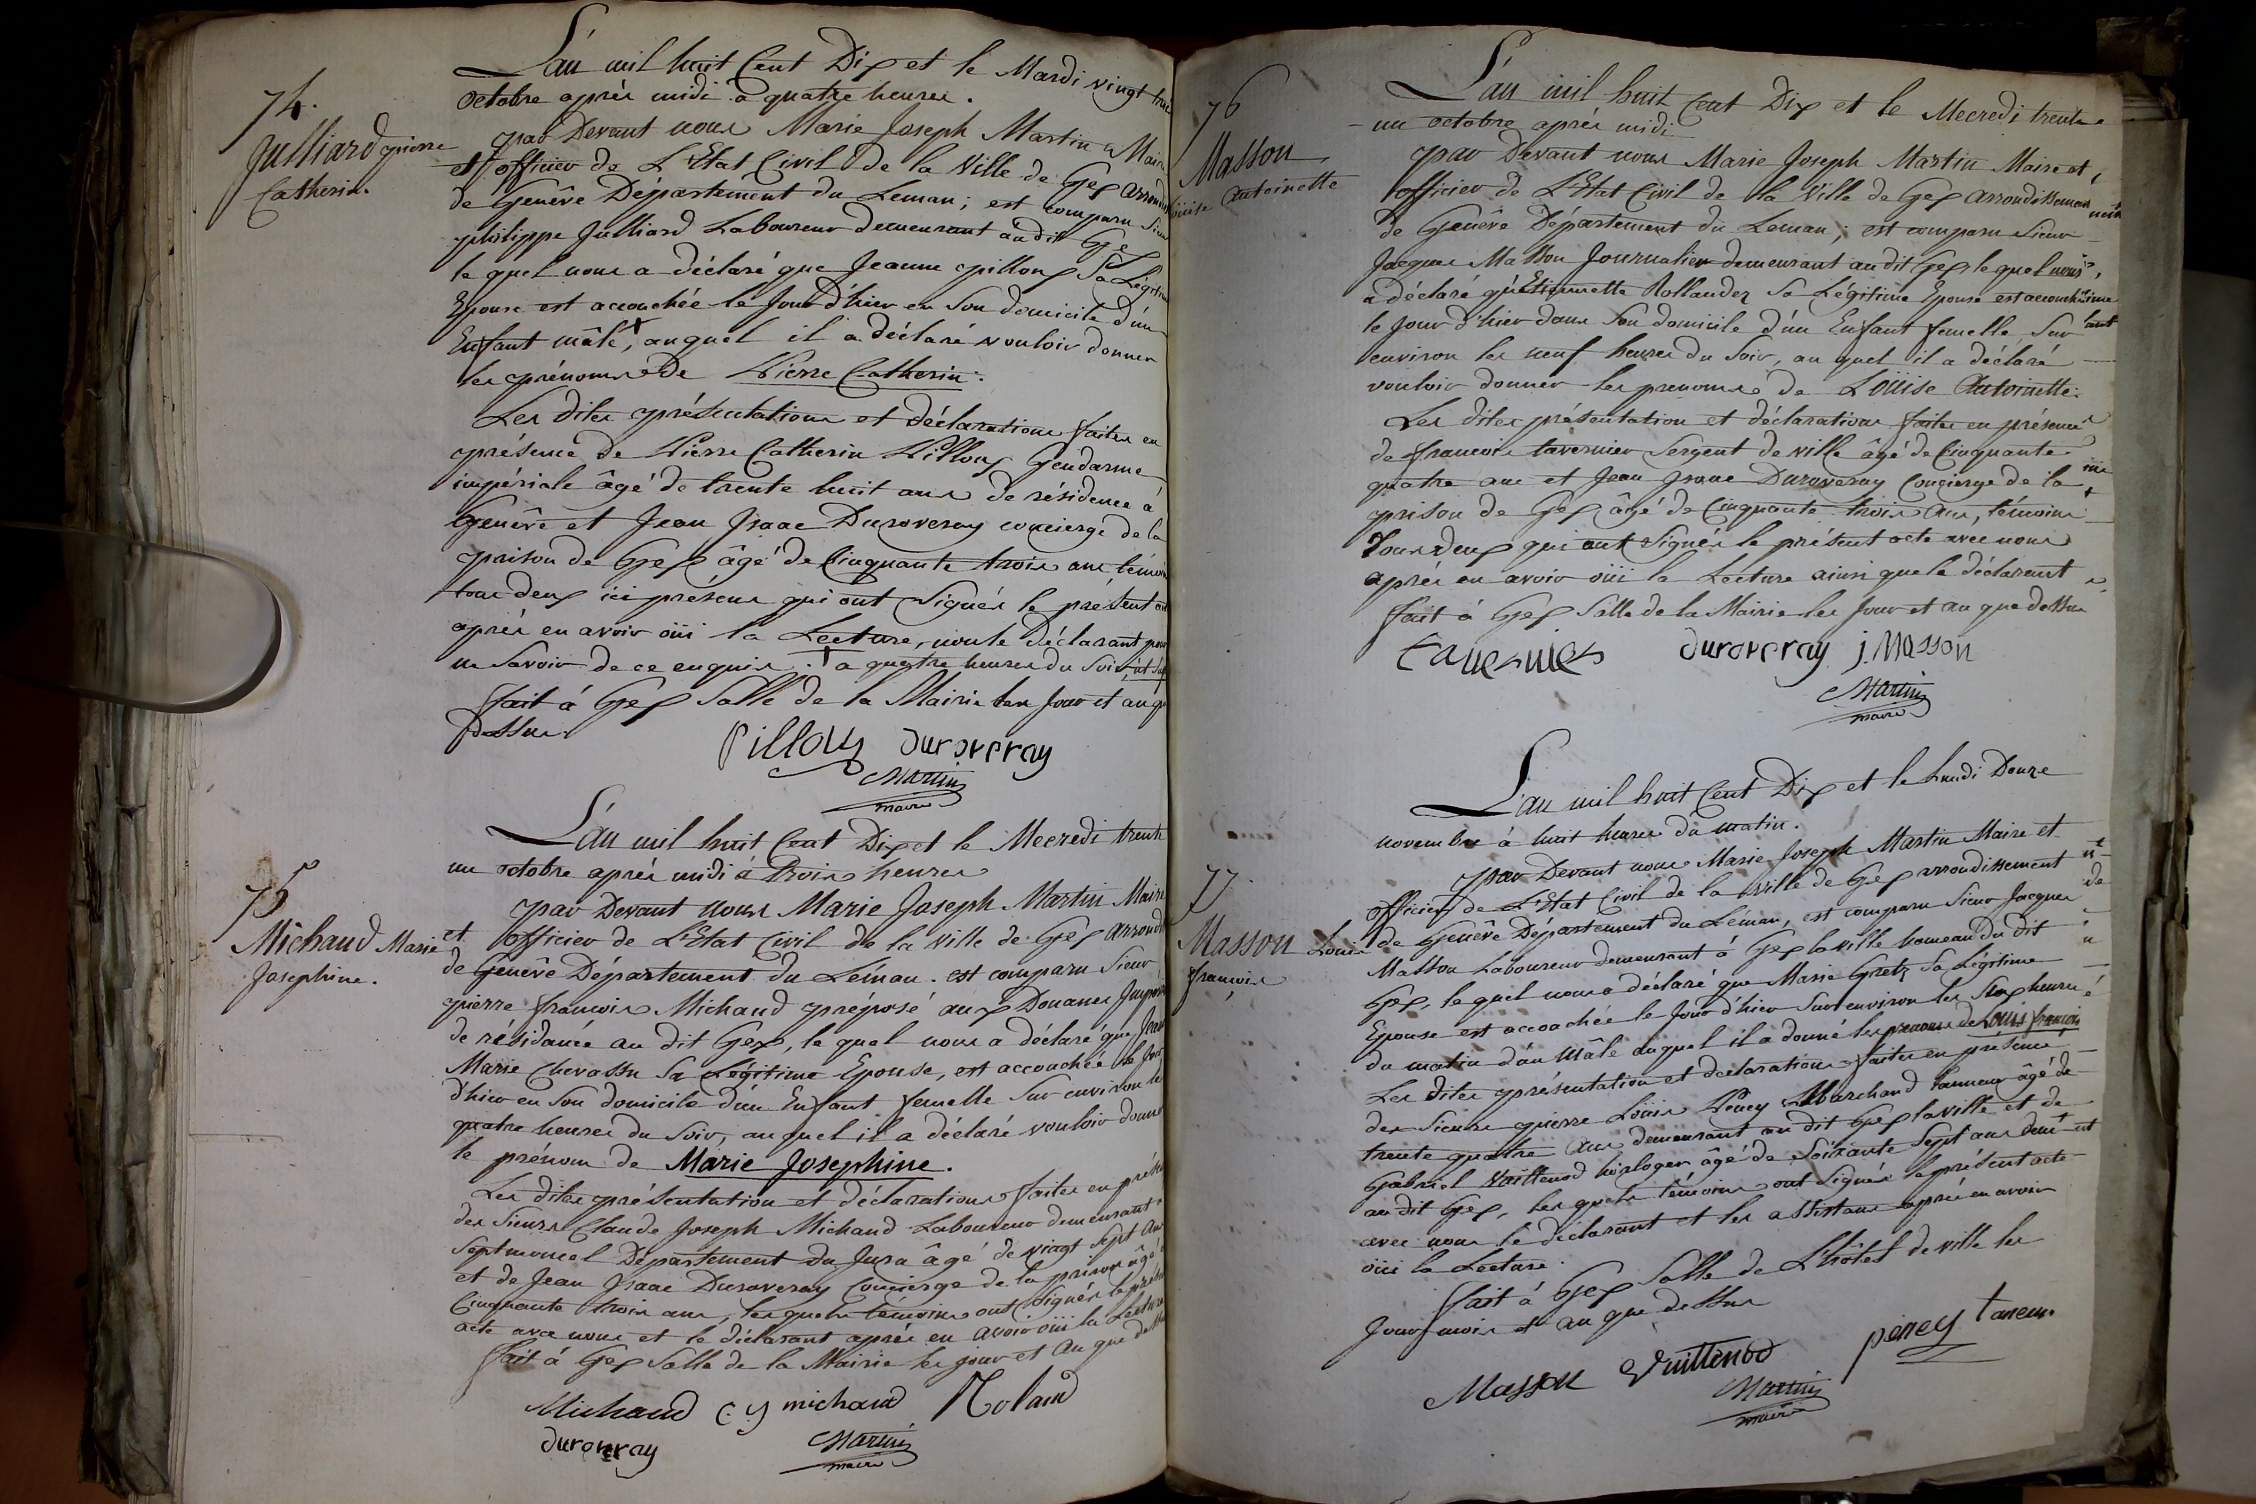 74.
Julliard pierre
Catherin.
L'an mil huit Cent Dix et le Mardi vingt
octobre après midi à quatre heures.
par Devant nous Marie Joseph Martin Maire
et officier de L'Etat Civil de la Ville de Gex
de Genêve Département du Leman; est comparu Sieur
philippe Julliard Laboureur demeurant au dit Gex
le quel nous a déclaré que Jeanne pilloux Sa Légitime
Epouse est accouchée le Jour d'hier en Son domicile d'un
Enfant mâle, auquel il a déclaré vouloir donner
les prénoms de Pierre Catherin.
Les dites présentations et déclarations faites en
présence de Pierre Catherin Pilloux Gendarme
impériale âgé de trente huit ans de résidence à
Genêve et Jean Isaac Duroveray concierge de la
prison de Gex âgé de Cinquante trois ans
tous deux ici présens qui ont Signés le présent
après en avoir oüi la Lecture, non le déclarant pour
ne Savoir de ce enquis. † a quatre heures du Soir
fait à Gex Salle de la Mairie les Jour et an que
dessus.
Pilloux duroveray
Martin
maire
75
Michaud Marie
Josephine.
L'an mil huit Cent Dix et le Mecredi trente
un octobre après midi à Trois heures
par Devant nous Marie Joseph Martin Maire
et officier de L'Etat Civil de la ville de Gex
de Genêve Département du Léman. est comparu Sieur
pierre francois Michaud préposé aux Douanes
de résidance au dit Gex, le quel nous a déclaré que
Marie Chevassu Sa Légitime Epouse, est accouchée le Jour
d'hier en Son domicile d'un Enfant femelle Sur environ les
quatre heures du Soir, au quel il a déclaré vouloir donner
le prénom de Marie Josephine.
Les dites présentation et déclarations faites en
des Sieurs Claude Joseph Michaud Laboureur demeurant
Septmoncel Département du Jura âgé de vingt Sept ans
et de Jean Isaac Duroveray Concierge de la prison âgé
Cinquante trois ans, les quels témoins ont Signés le
acte avec nous et le déclarant après en avoir oüi la Lecture
fait à Gex Salle de la Mairie les jour et an que
Michaud C. J michaud Roland
duroveray
Martin
maire
76
Masson
Louise Antoinette
L'an mil huit Cent Dix et le Mecredi trente
un octobre après midi
par Devant nous Marie Joseph Martin Maire et
officier de L'Etat Civil de la Ville de Gex arrondissement
de Genêve Département du Leman; est comparu Sieur
Jacques Masson Journalier demeurant au dit Gex le quel nous
a déclaré qu'Etiennette Rollandez Sa Légitime Epouse est accouchée
le Jour d'hier dans Son domicile d'un Enfant femelle Sur
environ les neuf heures du Soir, au quel il a déclaré
vouloir donner les prenoms de Loüise Antoinette.
Les dites présentation et déclarations faites en présence
de francois tavernier Sergent de ville âgé de Cinquante
quatre ans et Jean Isaac Duroveray Concierge de la
prison de Gex âgé de Cinquante trois ans, témoins
Tous deux qui ont Signés le présent acte avec nous
après en avoir oüi la Lecture ainsi que le déclarant
fait à Gex Salle de la Mairie les Jour et an que dessus
tavernier duroveray j. Masson
Martin
maire
77
Masson Louis
francois
L'an mil huit Cent Dix et le Lundi Douze
novembre à huit heures du matin.
par Devant nous Marie Joseph Martin Maire et
officier de L'Etat Civil de la Ville de Gex arrondissement
de Genêve Département du Léman, est comparu Sieur Jacques
Masson Laboureur demeurant à Gex la ville hameau du dit
Gex, le quel nous a déclaré que Marie Gretz Sa Légitime
Epouse est accouchée le Jour d'hier Sur environ les Six heures
du matin d'un Mâle auquel il a donné les prenoms de Louis françois
Les dites présentation et déclarations faites en présence
des Sieurs pierre Loüis Perrey Marchand tanneur âgé de
trente quatre ans demeurant au dit Gex la ville et de
Gabriel Vuittenod horloger âgé de Soixante Sept ans demt
au dit Gex, les quels témoins ont Signés le présent acte
avec nous le déclarant et les assistans après en avoir
oüi la Lecture.
fait à Gex Salle de L'hôtel de ville les
Jour mois et an que dessus
Masson Vuittenod perrey taneur
Martin
maire